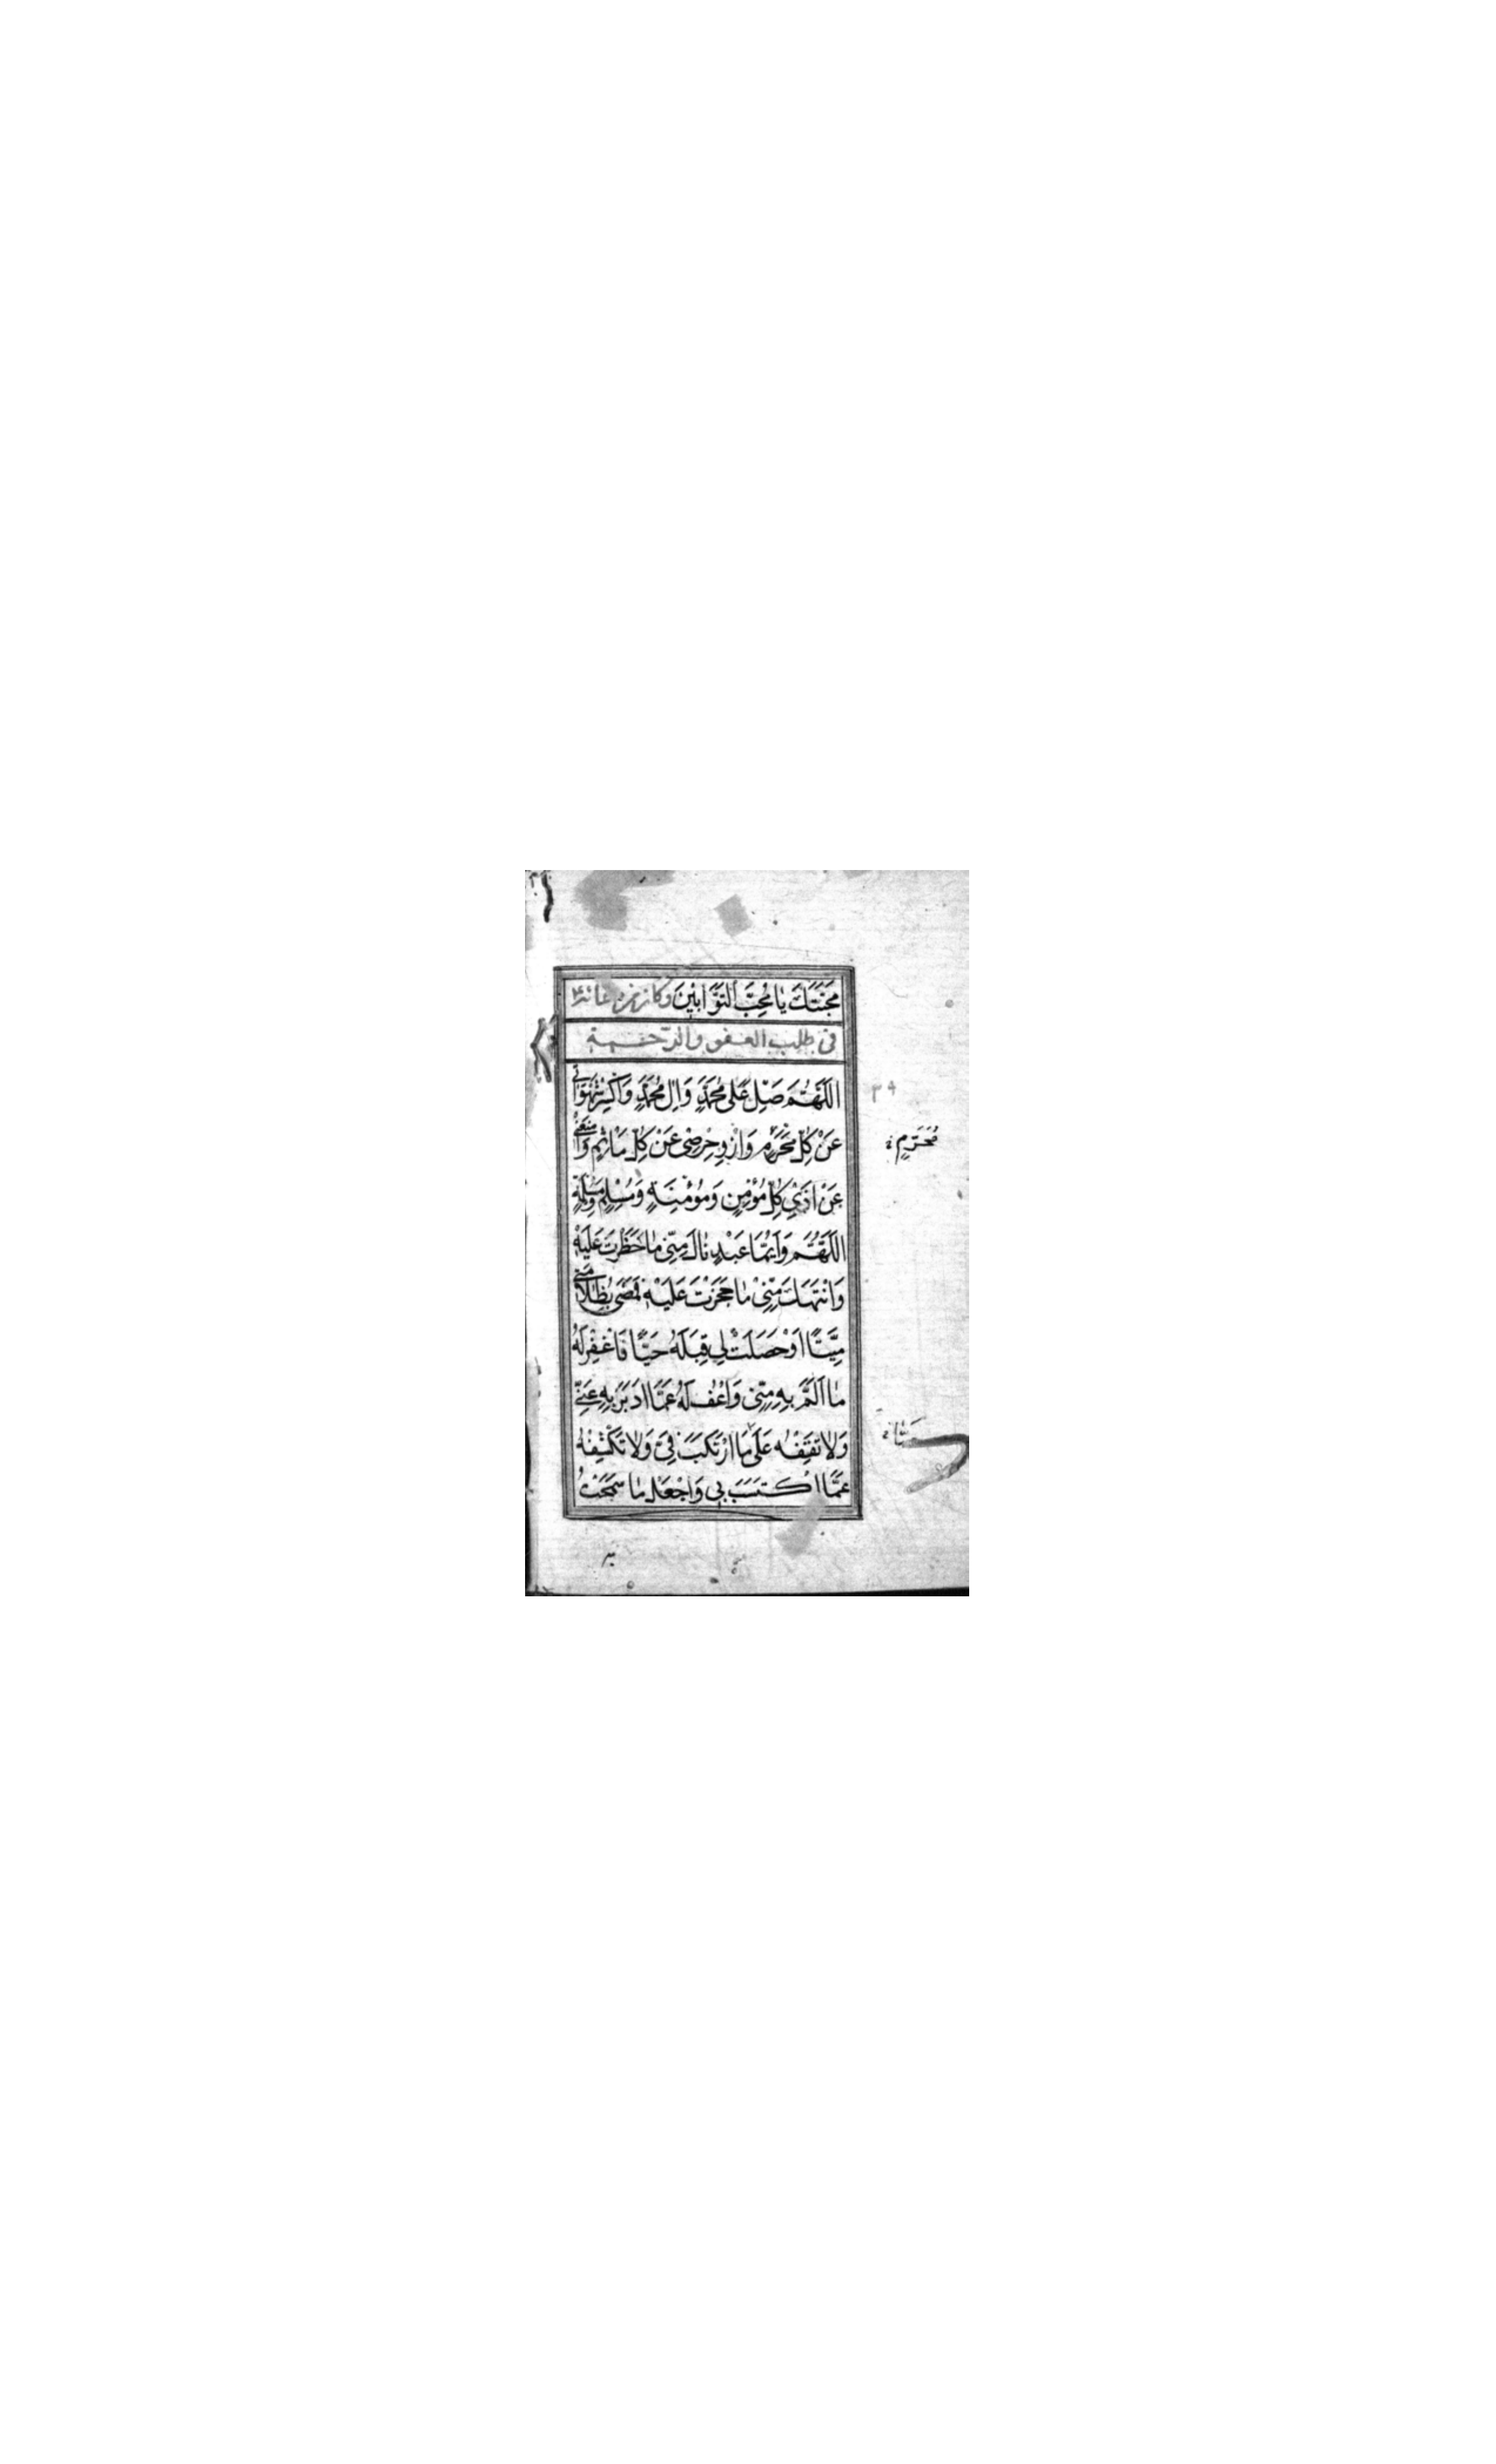 مَحَبَّتَكَ يَا مُحِبَّ التَّوَّابِيْنَ وَكَانَ مِنْ دُعَائِهِ
فِي طَلَبِ الْعَفْوِ وَالرَّحْمَةِ
اَللّٰهُمَّ صَلِّ عَلٰى مُحَمَّدٍ وَاٰلِ مُحَمَّدٍ وَاكْسِرْ شَهْوَتِي
عَنْ كُلِّ مَحْرَمٍ وَازْوِ حِرْصِي عَنْ كُلِّ مَاْثَمٍ وَامْنَعْنِي
عَنْ اَذٰى كُلِّ مُؤْمِنٍ وَمُؤْمِنَةٍ وَمُسْلِمٍ وَمُسْلِمَةٍ
اَللّٰهُمَّ وَاَيُّمَا عَبْدٍ نَالَ مِنِّي مَا حَظَرْتَ عَلَيْهِ
وَانْتَهَكَ مِنِّي مَا حَجَزْتَ عَلَيْهِ فَمَضٰى بِظُلَامَتِي
مَيِّتًا اَوْ حَصَلَتْ لِي قِبَلَهُ حَيًّا فَاغْفِرْ لَهُ
مَا اَلَمَّ بِهِ مِنِّي وَاعْفُ لَهُ عَمَّا اَدْبَرَ بِهِ عَنِّي
وَلَا تَقِفْهُ عَلٰى مَا ارْتَكَبَ فِيَّ وَلَا تَكْشِفْهُ
عَمَّا اكْتَسَبَ بِي وَاجْعَلْ مَا سَمَحْتُ
٣٩
مُحَرَّمٍ